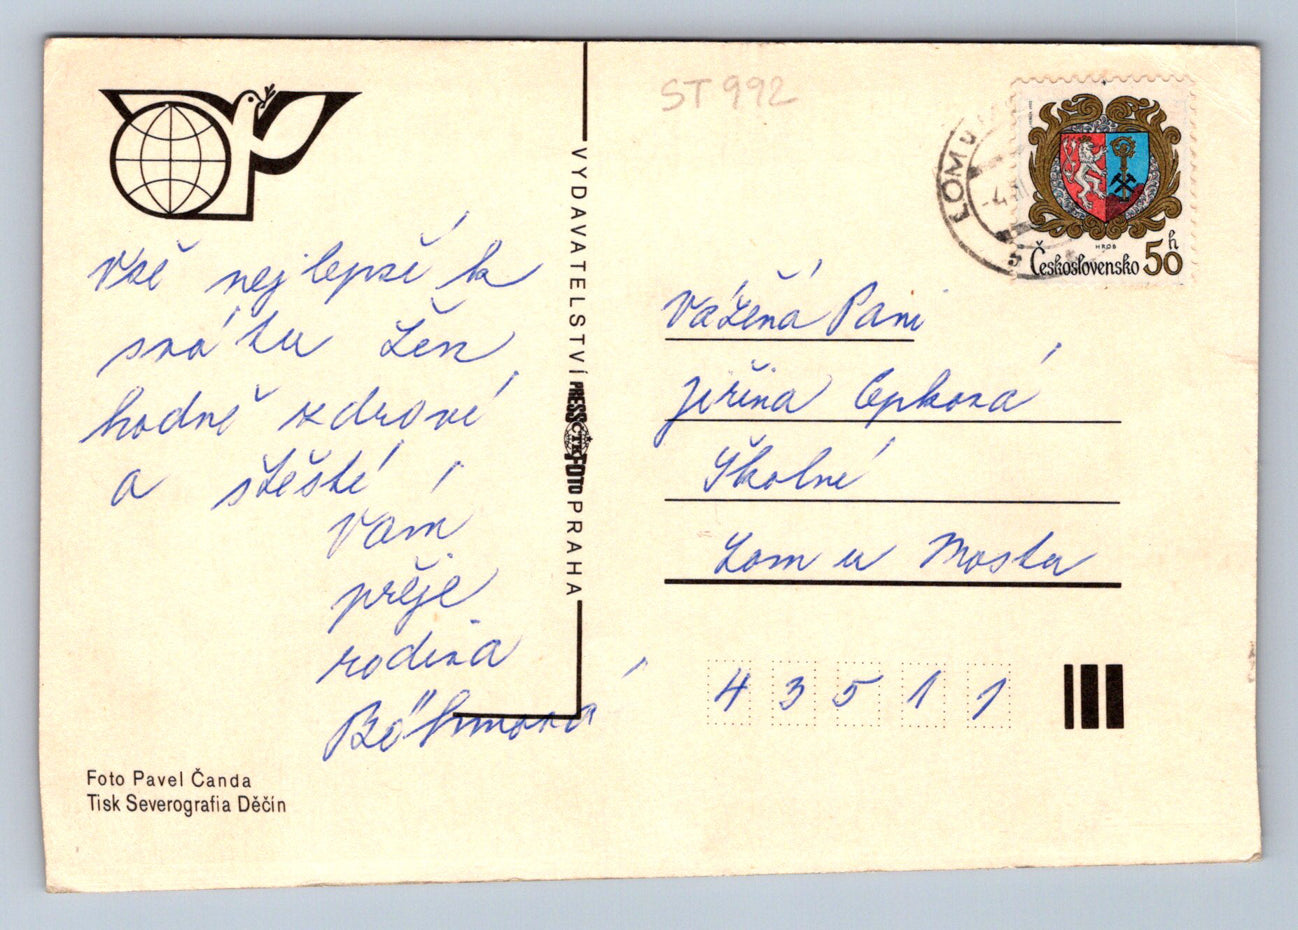 ST 992
LOM u
-4.
HROB
Československo 50 h
Vše nejlepší k
svátku žen
hodně zdraví
a štěstí
Vám
přeje
rodina
Böhmová
VYDAVATELSTVÍ PRESSFOTO PRAHA
ČTK
Vážená Paní
Jiřina Cepková
Školní
Lom u Mostu
43511
Foto Pavel Čanda
Tisk Severografia Děčín